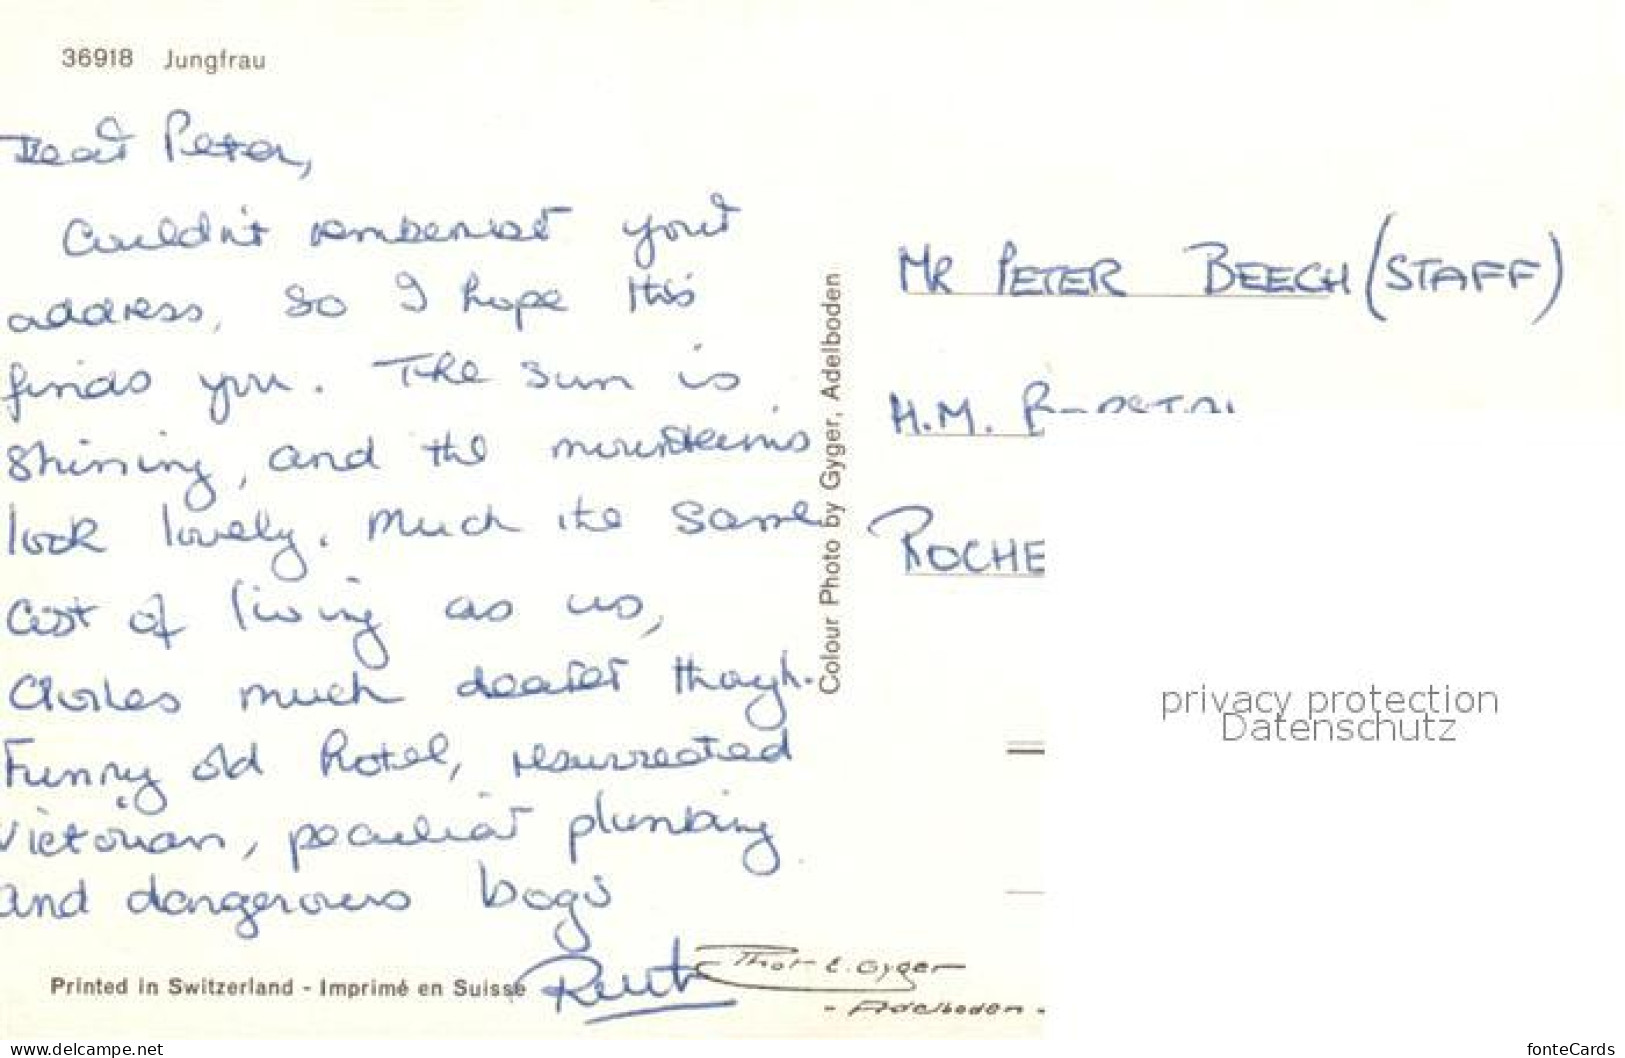 36918 Jungfrau
Dear Peter,
Couldn't remember your
address, so I hope this
finds you. The sun is
shining, and the mountains
look lovely. Much the same
cost of living as us,
Clothes much dearer though.
Funny old hotel, resurrected
Victorian, peculiar plumbing
and dangerous bogs
Ruth
Printed in Switzerland - Imprimé en Suisse
Colour Photo by Gyger, Adelboden
MR PETER BEECH (STAFF)
H.M.
ROCHE
privacy protection
Datenschutz
Thor E. Gyger
- Adelboden -
www.delcampe.net
fonteCards